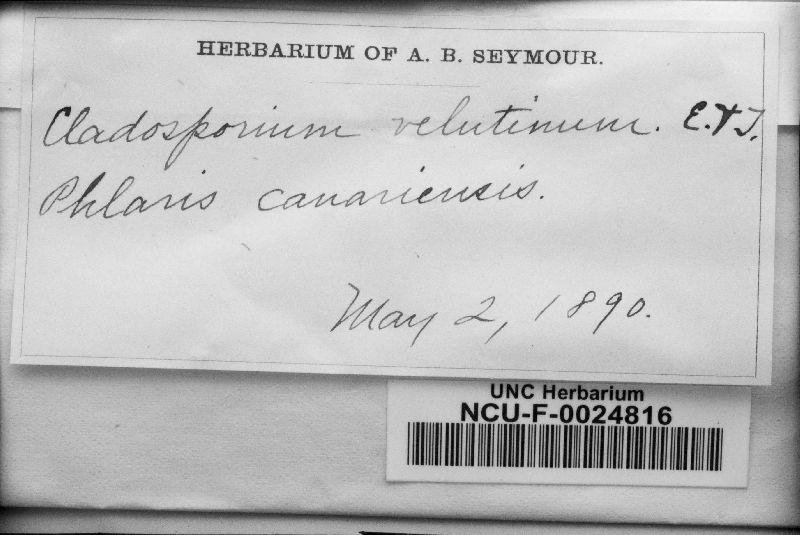 HERBARIUM OF A. B. SEYMOUR.
Cladosporium velutinum. E.&T.
Phlaris canariensis.
May 2, 1890.
UNC Herbarium
NCU-F-0024816